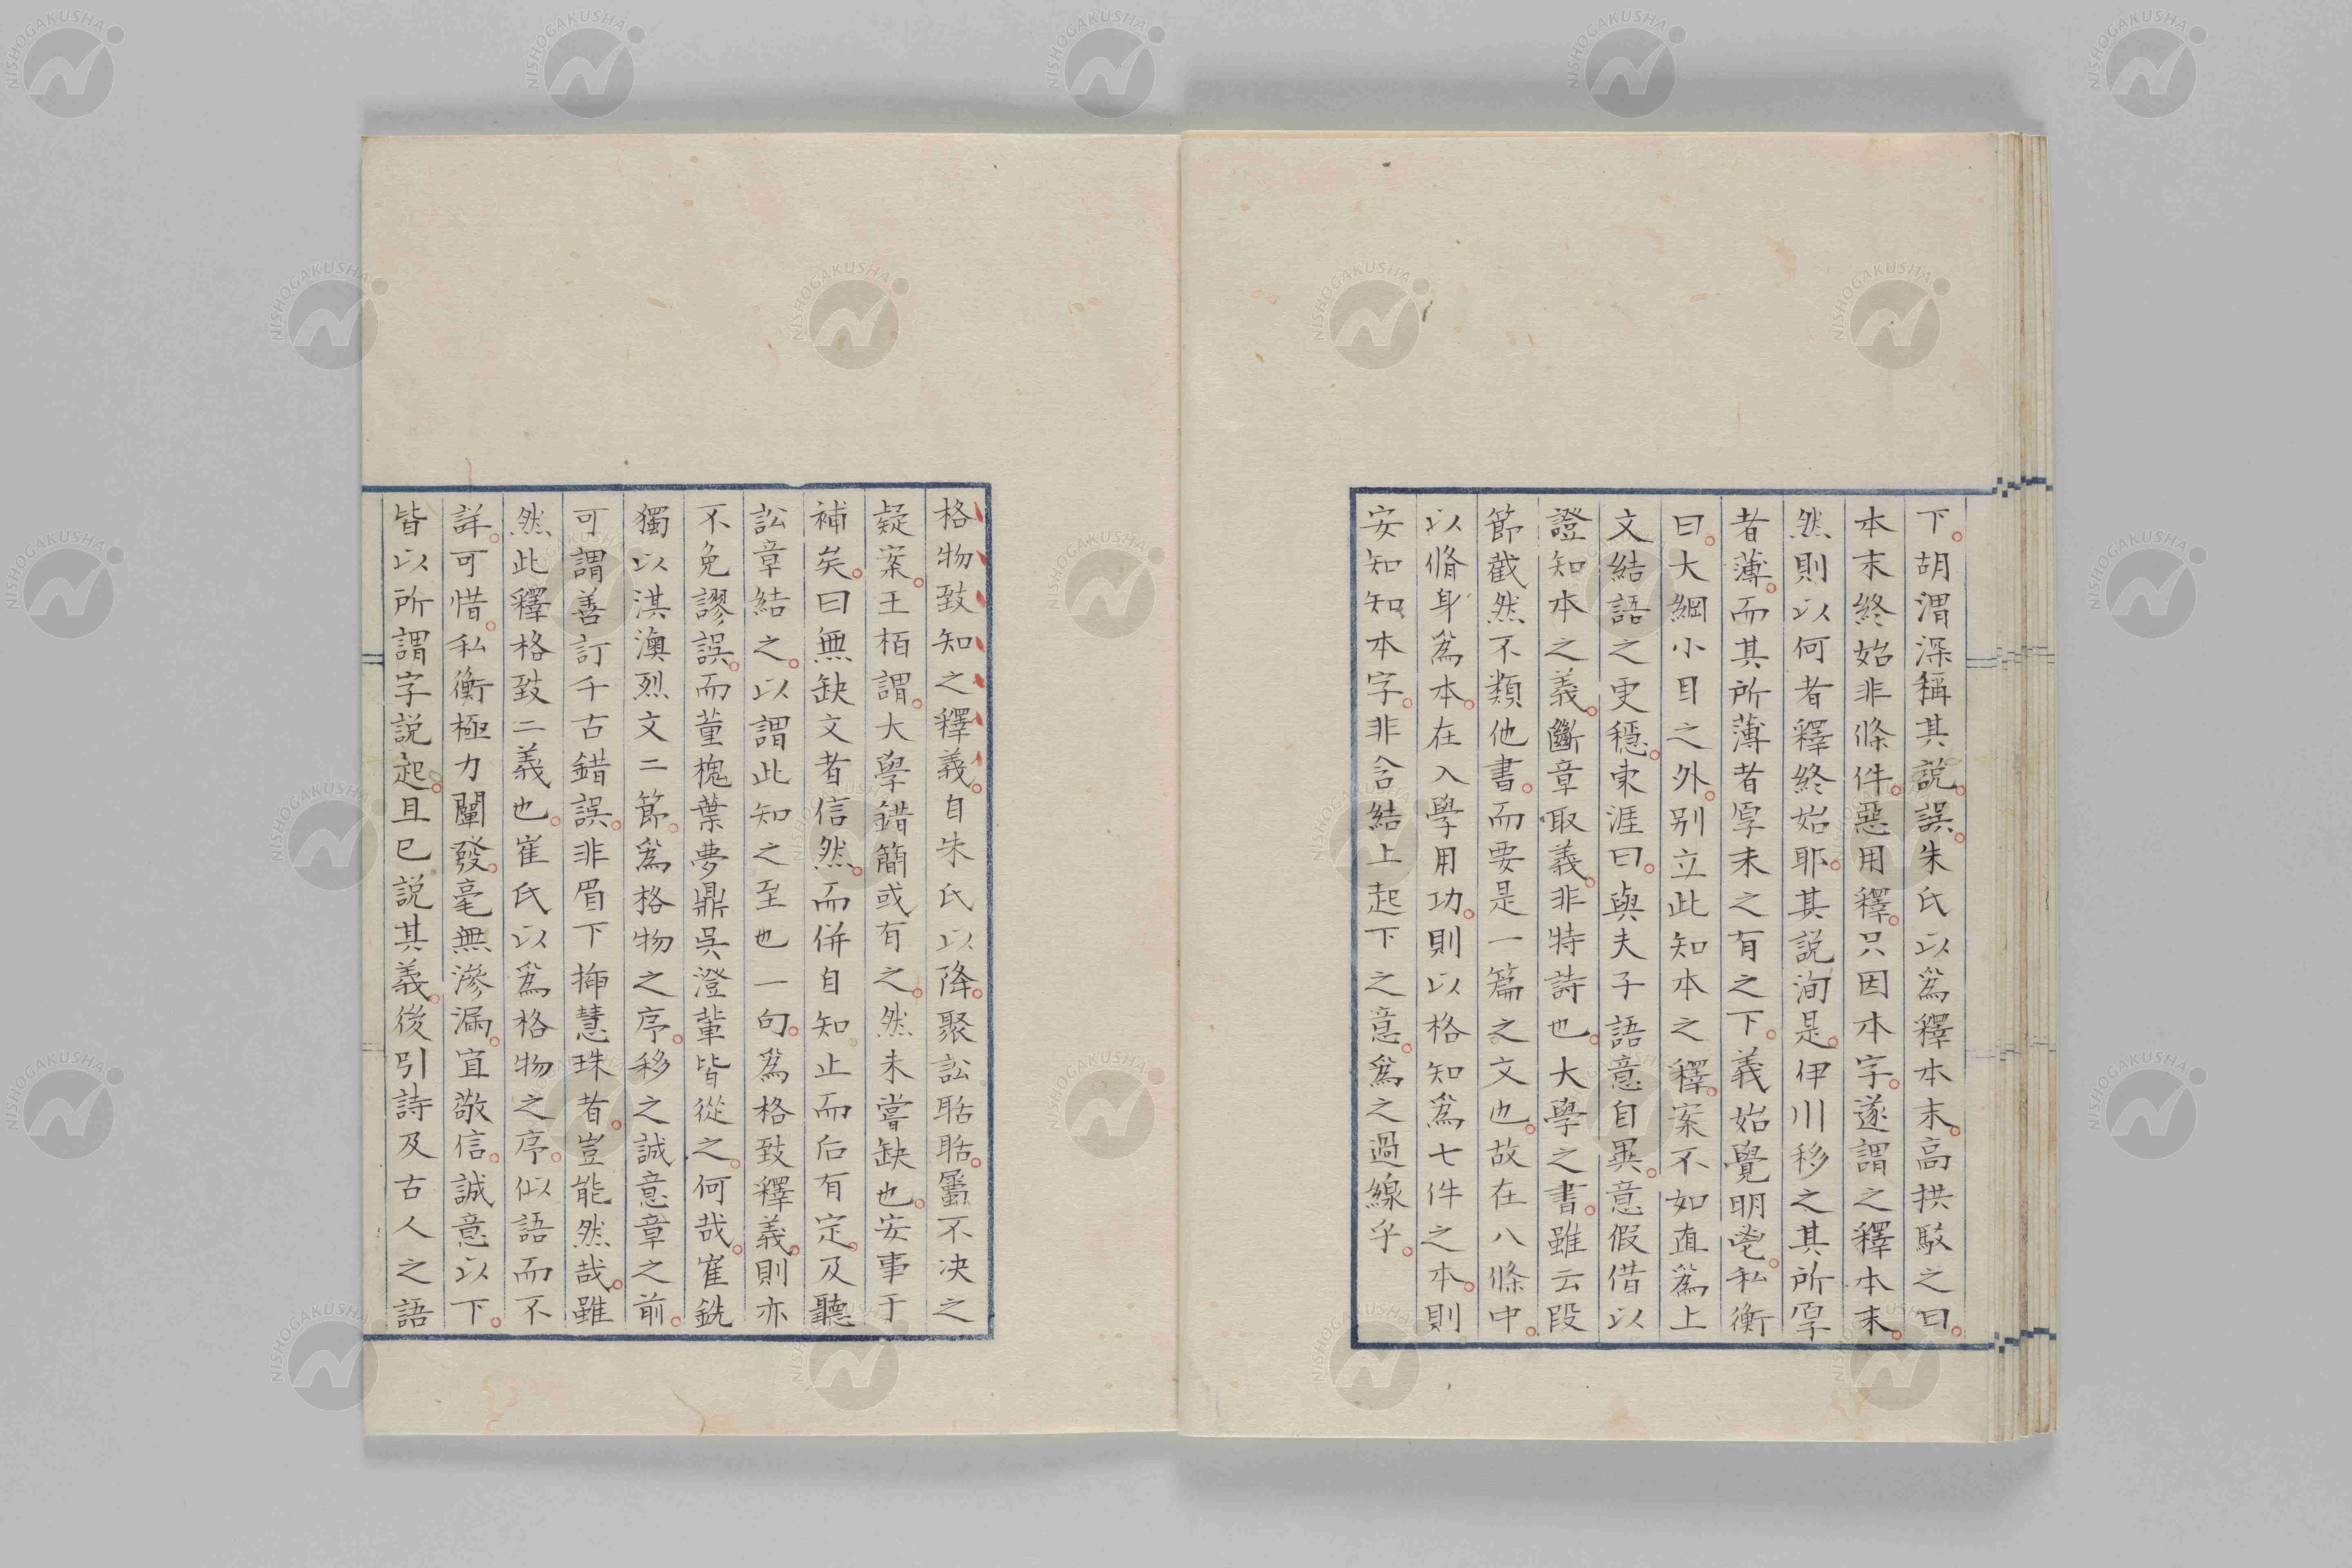 下。胡渭深稱其說。誤。朱氏以為釋本末。高拱駁之曰。
本末終始非條件。惡用釋。只因本字。遂謂之釋本末。
然則以何者釋終始耶。其說洵是。伊川移之其所厚
者薄。而其所薄者厚未之有之下。義始覺明鬯。私衡
曰。大綱小目之外。別立此知本之釋。案不如直為上
文結語之更穩。東涯曰。與夫子語意自異。意假借以
證知本之義。斷章取義。非特詩也。大學之書。雖云段
節截然不類他書。而要是一篇之文也。故在八條中。
以脩身為本。在入學用功。則以格知為七件之本。則
安知知本字。非含結上起下之意。為之過線乎。
格物致知之釋義。自朱氏以降。聚訟聒聒。屬不決之
疑案。王栢謂。大學錯簡或有之。然未嘗缺也。安事于
補矣。曰無缺文者信然。而併自知止而后有定。及聽
訟章結之。以謂此知之至也一句。為格致釋義。則亦
不免謬誤。而董槐葉夢鼎吳澄輩皆從之。何哉。崔銑
獨以淇澳烈文二節。為格物之序。移之誠意章之前。
可謂善訂千古錯誤。非眉下揷慧珠者。豈能然哉。雖
然此釋格致二義也。崔氏以為格物之序。似語而不
詳。可惜。私衡極力闡發。毫無滲漏。宜敬信。誠意以下。
皆以所謂字說起。且已說其義。後引詩及古人之語